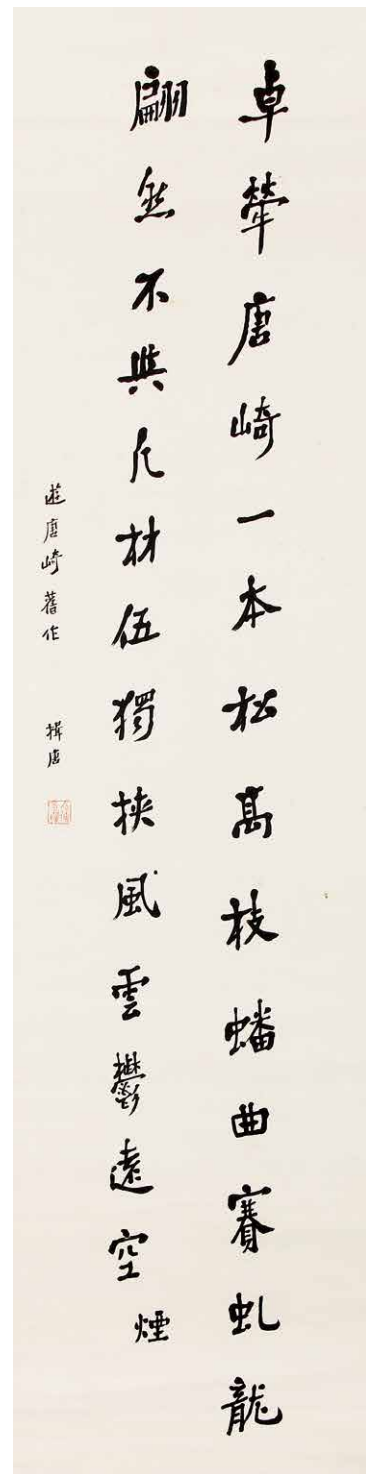 卓犖唐崎一本松萬枝蟠曲賽虬龍
翩然不與凡材伍獨挾風雲鬱遠空
煙
遊唐崎舊作 揖唐